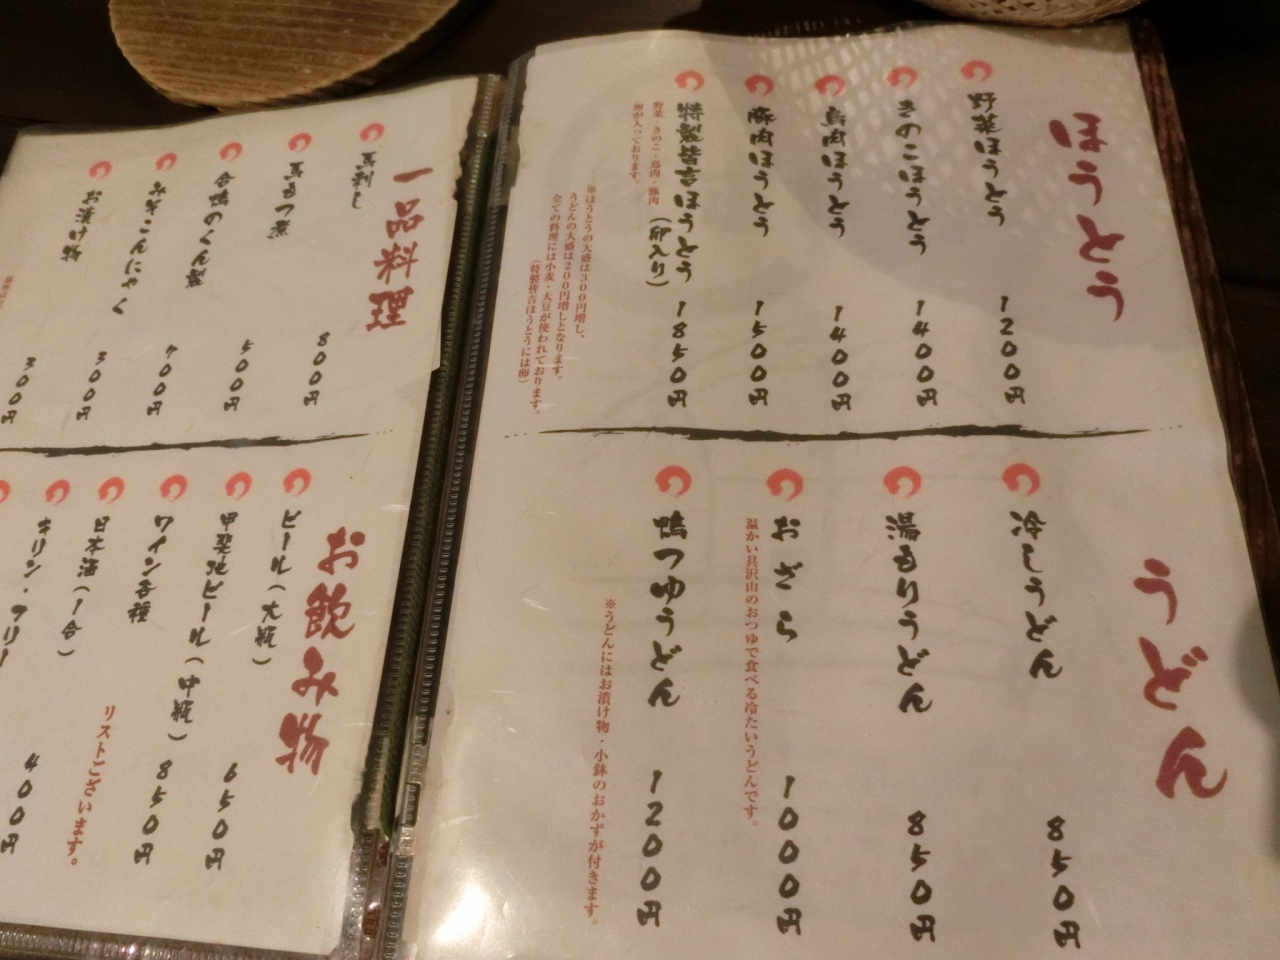 ほうとう
野菜ほうとう 1200円
きのこほうとう 1400円
鳥肉ほうとう 1400円
豚肉ほうとう 1500円
特製皆吉ほうとう(卵入り) 1850円
野菜・きのこ・鳥肉・豚肉
卵が入っております。
※ほうとうの大盛は300円増し、
うどんの大盛は200円増しとなります。
全ての料理には小麦・大豆が使われております。
(特製皆吉ほうとうには卵)
うどん
冷しうどん 850円
湯もりうどん 850円
おざら 1000円
温かい具沢山のおつゆで食べる冷たいうどんです。
鴨つゆうどん 1200円
※うどんにはお漬け物・小鉢のおかずが付きます。
一品料理
馬刺し 800円
馬もつ煮 500円
合鴨のくん製 700円
みそこんにゃく 300円
お漬け物 300円
お飲み物
ビール(大瓶) 650円
甲斐地ビール(中瓶) 850円
ワイン各種
リストございます。
日本酒(一合) 400円
キリン・フリー